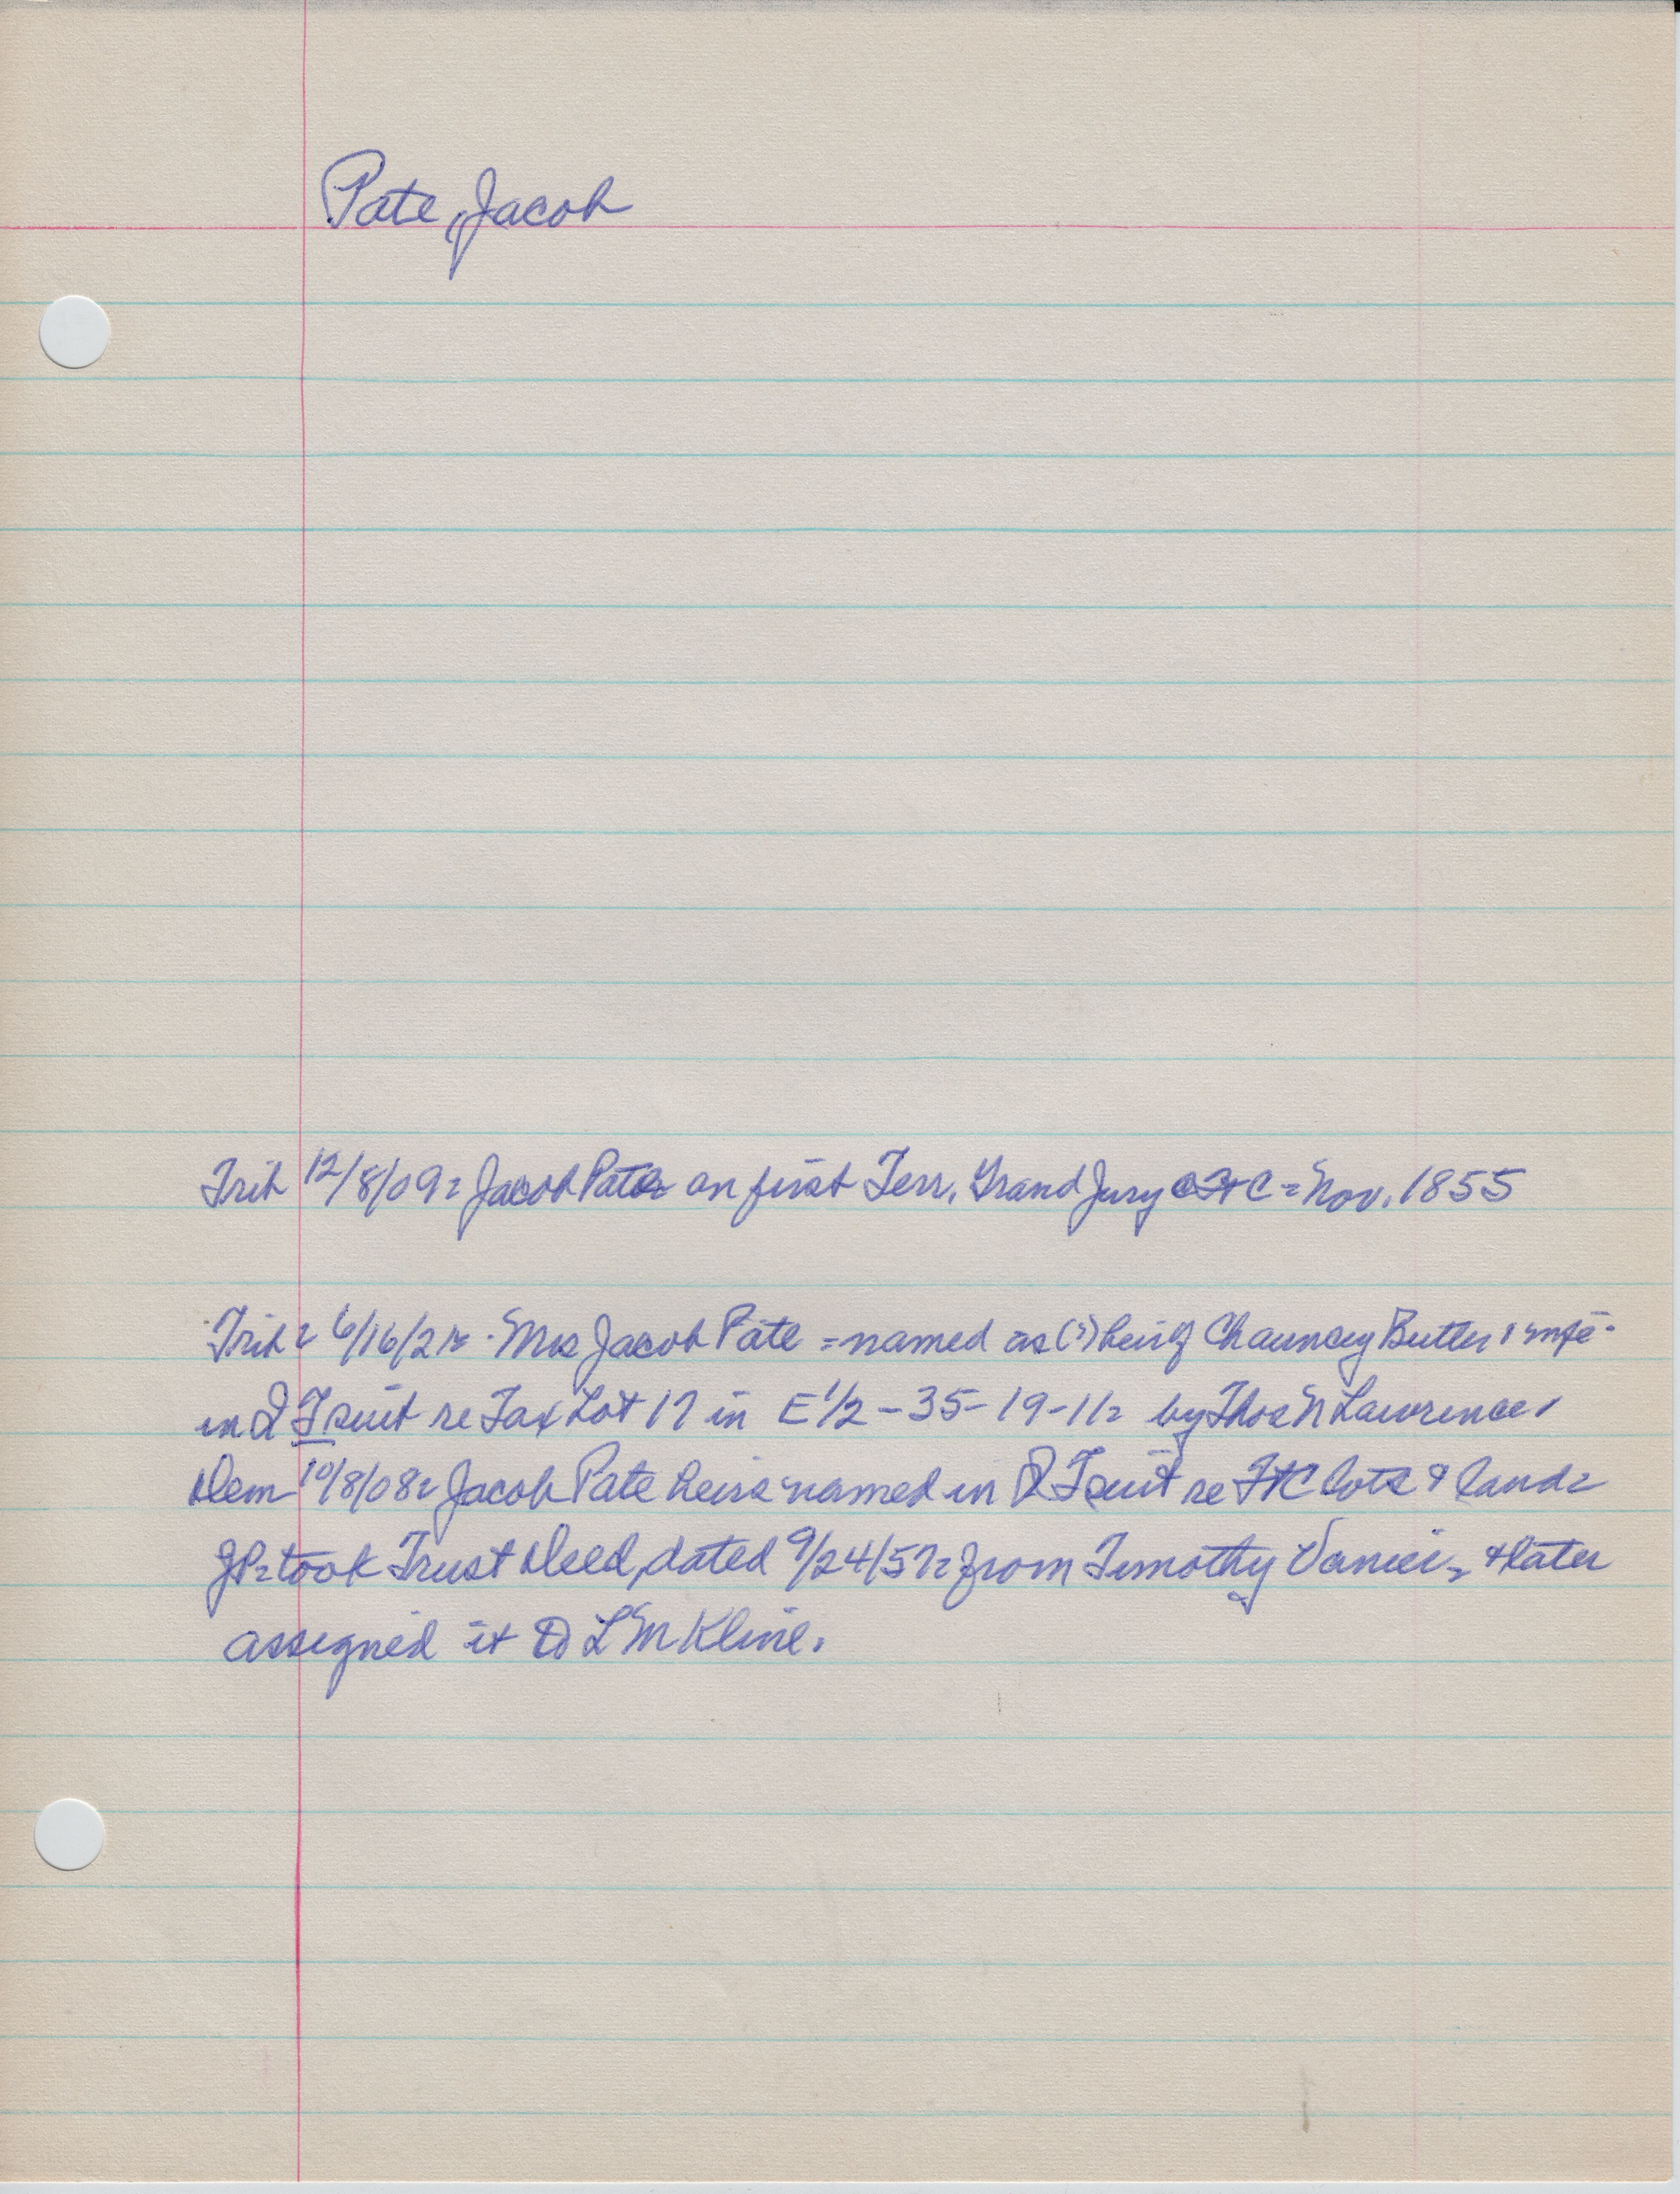 Pate, Jacob
Trib 12/8/09= Jacob Pate on first Terr. Grand Jury FtC = Nov. 1855
Trib = 6/16/21= Mrs Jacob Pate = named as (?) heir of Chauncey Butler & wife
in Q T suit re Tax Lot 17 in E 1/2 - 35-19-11= by Thos N Lawrence.
Dem 10/8/08= Jacob Pate heirs named in Q T suit re FtC lots & land=
JP= took Trust Deed, dated 9/24/57= from Timothy = & later
assigned it to L M Kline.